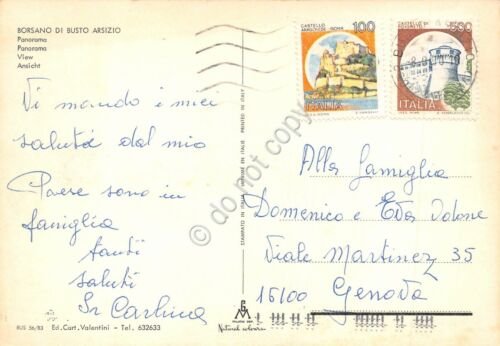 BORSANO DI BUSTO ARSIZIO
Panorama
Panorama
View
Ansicht
CASTELLO
ARAGONESE - ISCHIA
100
ITALIA
CASTELLO DI
ROVERETO
550
ITALIA
Vi mando i miei
saluti dal mio
Paese sono in
famiglia
tanti
saluti
Sr Carlina
STAMPATO IN ITALIA - IMPRIMÉ EN ITALIE - PRINTED IN ITALY
Alla famiglia
Domenico e Eda
Viale Martinez 35
16100 Genova
BUS 56/83 Ed. Cart. Valentini - Tel. 632633
Natural colour
do not copy